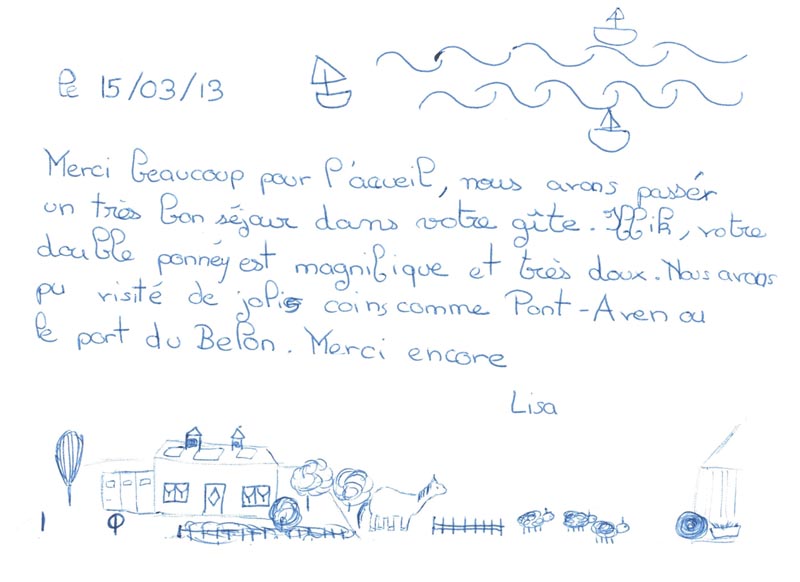 le 15/03/13
Merci beaucoup pour l'accueil, nous avons passér
un très bon séjour dans votre gîte. votre
double ponnéy est magnifique et très doux. Nous avons
pu visité de jolis coins comme Pont-Aven ou
le port du Belon. Merci encore
Lisa